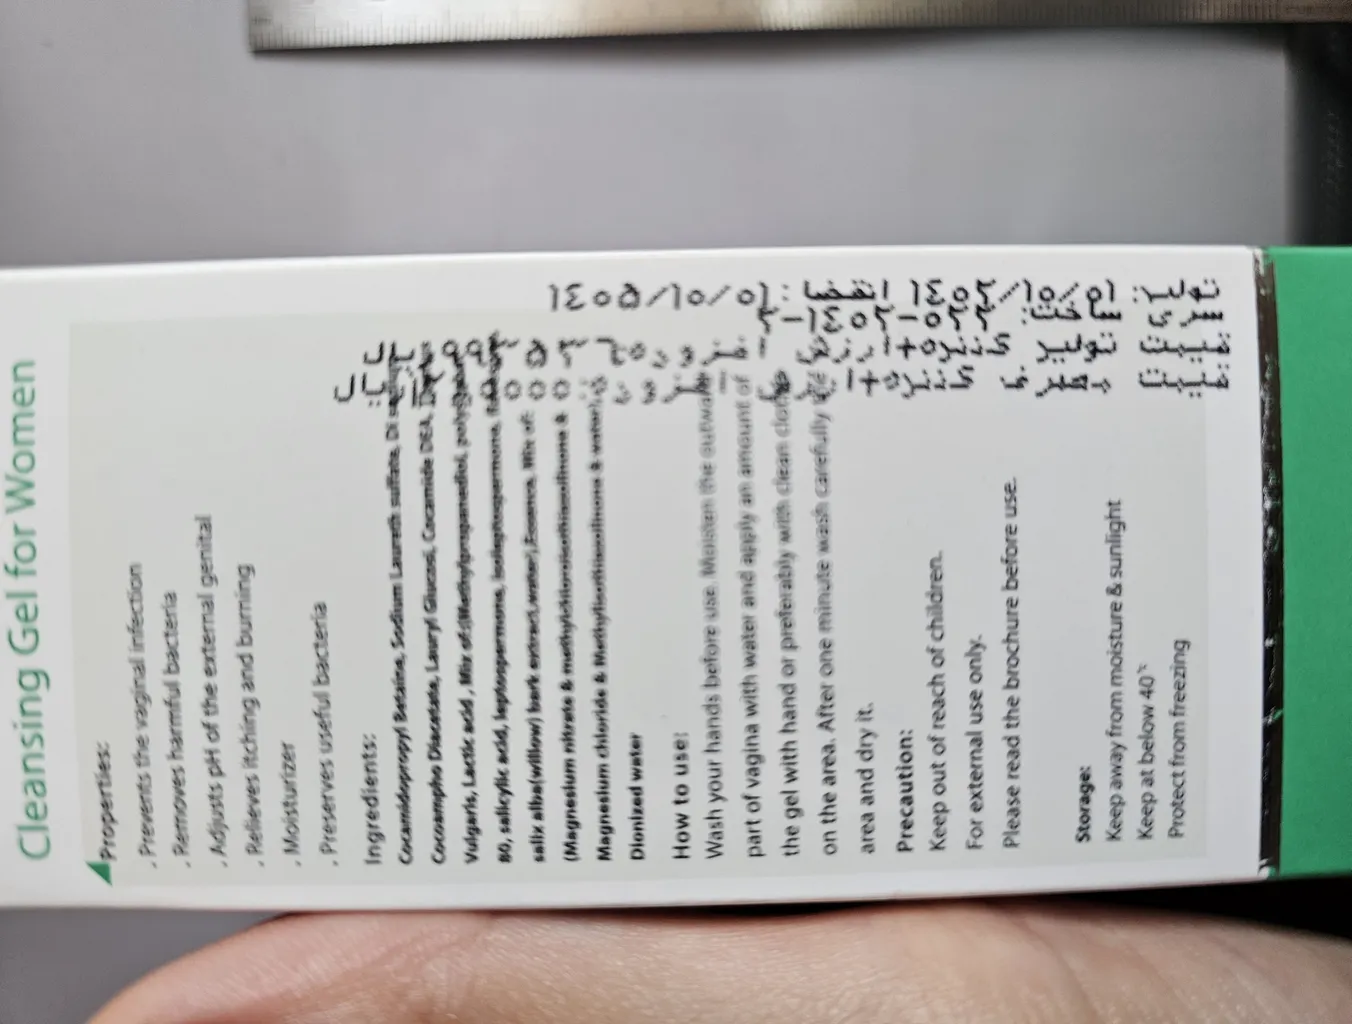 Cleansing Gel for Women
Properties:
. Prevents the vaginal infection
. Removes harmful bacteria
. Adjusts pH of the external genital
. Relieves itching and burning
. Moisturizer
. Preserves useful bacteria
Ingredients:
Cocamidopropyl Betaine, Sodium Laureth sulfate, Di
Cocoampho Diacetate, Lauryl Glucosi, Cocamide DEA,
Vulgaris, Lactic acid , Mix of:(Methylpropanediol,
80, salicylic acid, leptospermone,
salix alba(willow) bark extract,water),Essence, Mix of:
(Magnesium nitrate & methylchloroisothiazolinone &
Magnesium chloride & Methylisothiazolinone & water),
Dionized water
How to use:
Wash your hands before use. Moisten the outward
part of vagina with water and apply an amount of
the gel with hand or preferably with clean cloth
on the area. After one minute wash carefully the
area and dry it.
Precaution:
Keep out of reach of children.
For external use only.
Please read the brochure before use.
Storage:
Keep away from moisture & sunlight
Keep at below 40°
Protect from freezing
تولید: ۱۴۰۲/۱۰/۰۱ انقضا: ۱۴۰۵/۱۰/۰۱
سری ساخت: ۲-۱۴۰۲-۰۲۲
قیمت تولید کننده+ارزش افزوده
قیمت مصرف کننده+ارزش افزوده: ریال